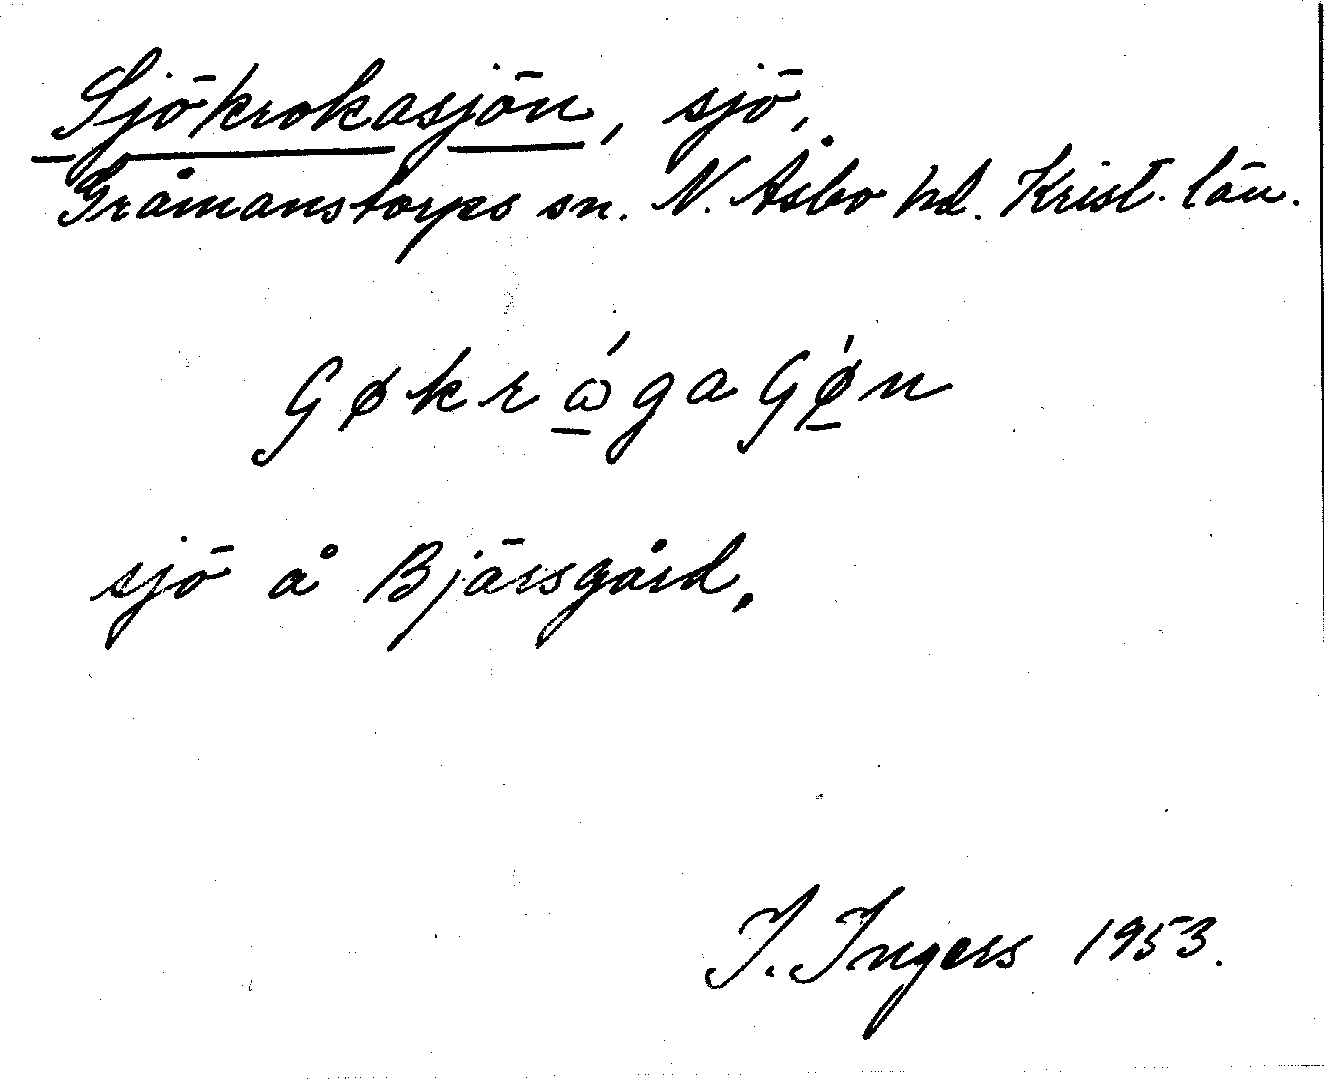 Sjökrokasjön, sjö,
Gråmanstorps sn. N. Åsbo hd. Krist. län.
GøkrώgaGǿn
sjö å Bjärsgård.
I. Ingers 1953.